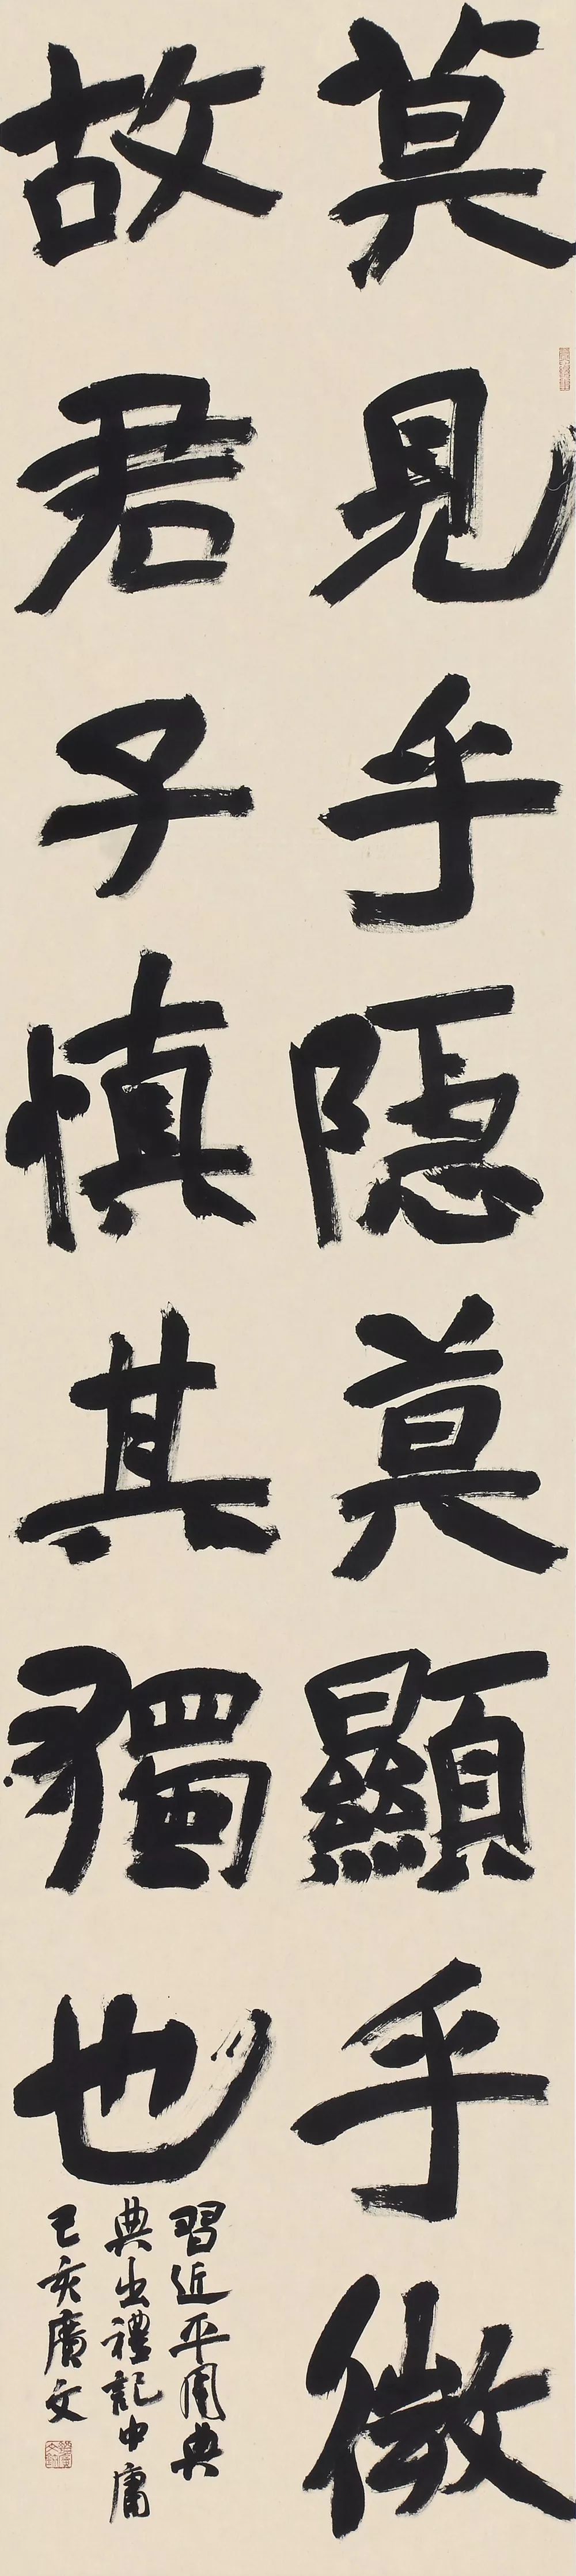 莫見乎隱莫顯乎微
故君子慎其獨也
習近平用典
典出禮記中庸
己亥廣文